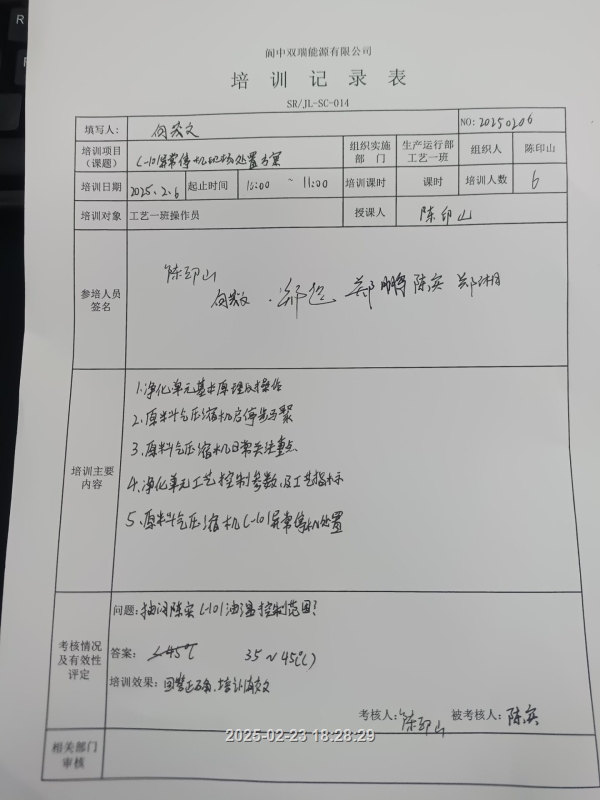 阆中双瑞能源有限公司
培训记录表
SR/JL-SC-014
填写人: 向发文 NO:20250206
培训项目(课题) C-101异常停机现场处置方案 组织实施部门 生产运行部工艺一班 组织人 陈印山
培训日期 2025.2.6 起止时间 10:00 ~ 11:00 培训课时 课时 培训人数 6
培训对象 工艺一班操作员 授课人 陈印山
参培人员签名
陈印山
郑鹏 陈实 郑相
培训主要内容
1.净化单元基本原理及操作
2.原料气压缩机启停步骤
3.原料气压缩机日常关注重点
4.净化单元工艺控制参数及工艺指标
5.原料气压缩机C-101异常停机处置
考核情况及有效性评定
问题:抽问陈实C-101油温控制范围?
答案: ≤45℃ 35~45(℃)
培训效果: 回答正确,培训有效
考核人: 陈印山 被考核人: 陈实
相关部门审核
2025-02-23 18:28:29